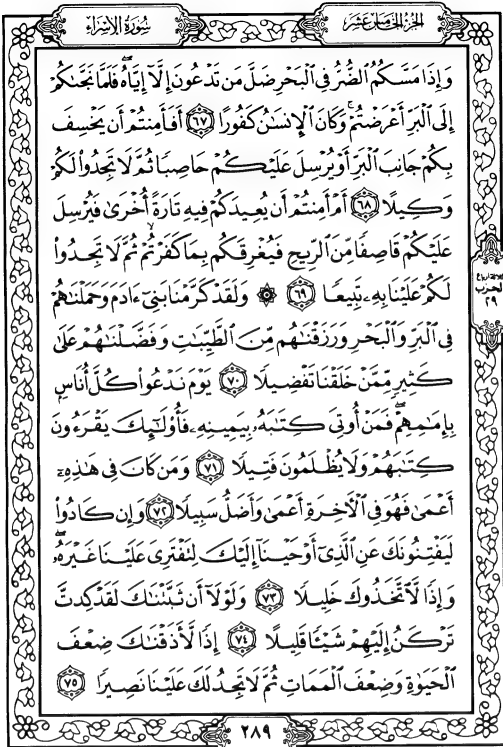 سُورَةُ الإِسْرَاءِ
الجُزْءُ الخَامِسَ عَشَرَ
وَإِذَا مَسَّكُمُ ٱلضُّرُّ فِى ٱلْبَحْرِ ضَلَّ مَن تَدْعُونَ إِلَّآ إِيَّاهُ ۖ فَلَمَّا نَجَّىٰكُمْ
إِلَى ٱلْبَرِّ أَعْرَضْتُمْ ۚ وَكَانَ ٱلْإِنسَٰنُ كَفُورًا ٦٧ أَفَأَمِنتُمْ أَن يَخْسِفَ
بِكُمْ جَانِبَ ٱلْبَرِّ أَوْ يُرْسِلَ عَلَيْكُمْ حَاصِبًا ثُمَّ لَا تَجِدُوا۟ لَكُمْ
وَكِيلًا ٦٨ أَمْ أَمِنتُمْ أَن يُعِيدَكُمْ فِيهِ تَارَةً أُخْرَىٰ فَيُرْسِلَ
عَلَيْكُمْ قَاصِفًا مِّنَ ٱلرِّيحِ فَيُغْرِقَكُم بِمَا كَفَرْتُمْ ۙ ثُمَّ لَا تَجِدُوا۟
لَكُمْ عَلَيْنَا بِهِۦ تَبِيعًا ٦٩ ۞ وَلَقَدْ كَرَّمْنَا بَنِىٓ ءَادَمَ وَحَمَلْنَٰهُمْ
فِى ٱلْبَرِّ وَٱلْبَحْرِ وَرَزَقْنَٰهُم مِّنَ ٱلطَّيِّبَٰتِ وَفَضَّلْنَٰهُمْ عَلَىٰ
كَثِيرٍ مِّمَّنْ خَلَقْنَا تَفْضِيلًا ٧٠ يَوْمَ نَدْعُوا۟ كُلَّ أُنَاسٍۭ
بِإِمَٰمِهِمْ ۖ فَمَنْ أُوتِىَ كِتَٰبَهُۥ بِيَمِينِهِۦ فَأُو۟لَٰٓئِكَ يَقْرَءُونَ
كِتَٰبَهُمْ وَلَا يُظْلَمُونَ فَتِيلًا ٧١ وَمَن كَانَ فِى هَٰذِهِۦٓ
أَعْمَىٰ فَهُوَ فِى ٱلْـَٔاخِرَةِ أَعْمَىٰ وَأَضَلُّ سَبِيلًا ٧٢ وَإِن كَادُوا۟
لَيَفْتِنُونَكَ عَنِ ٱلَّذِىٓ أَوْحَيْنَآ إِلَيْكَ لِتَفْتَرِىَ عَلَيْنَا غَيْرَهُۥ ۖ
وَإِذًا لَّٱتَّخَذُوكَ خَلِيلًا ٧٣ وَلَوْلَآ أَن ثَبَّتْنَٰكَ لَقَدْ كِدتَّ
تَرْكَنُ إِلَيْهِمْ شَيْـًٔا قَلِيلًا ٧٤ إِذًا لَّأَذَقْنَٰكَ ضِعْفَ
ٱلْحَيَوٰةِ وَضِعْفَ ٱلْمَمَاتِ ثُمَّ لَا تَجِدُ لَكَ عَلَيْنَا نَصِيرًا ٧٥
الحزب
٢٩
٢٨٩